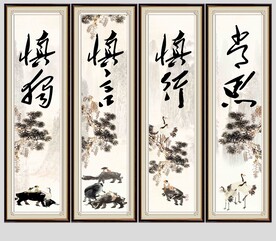 慎独
慎言
慎行
常思